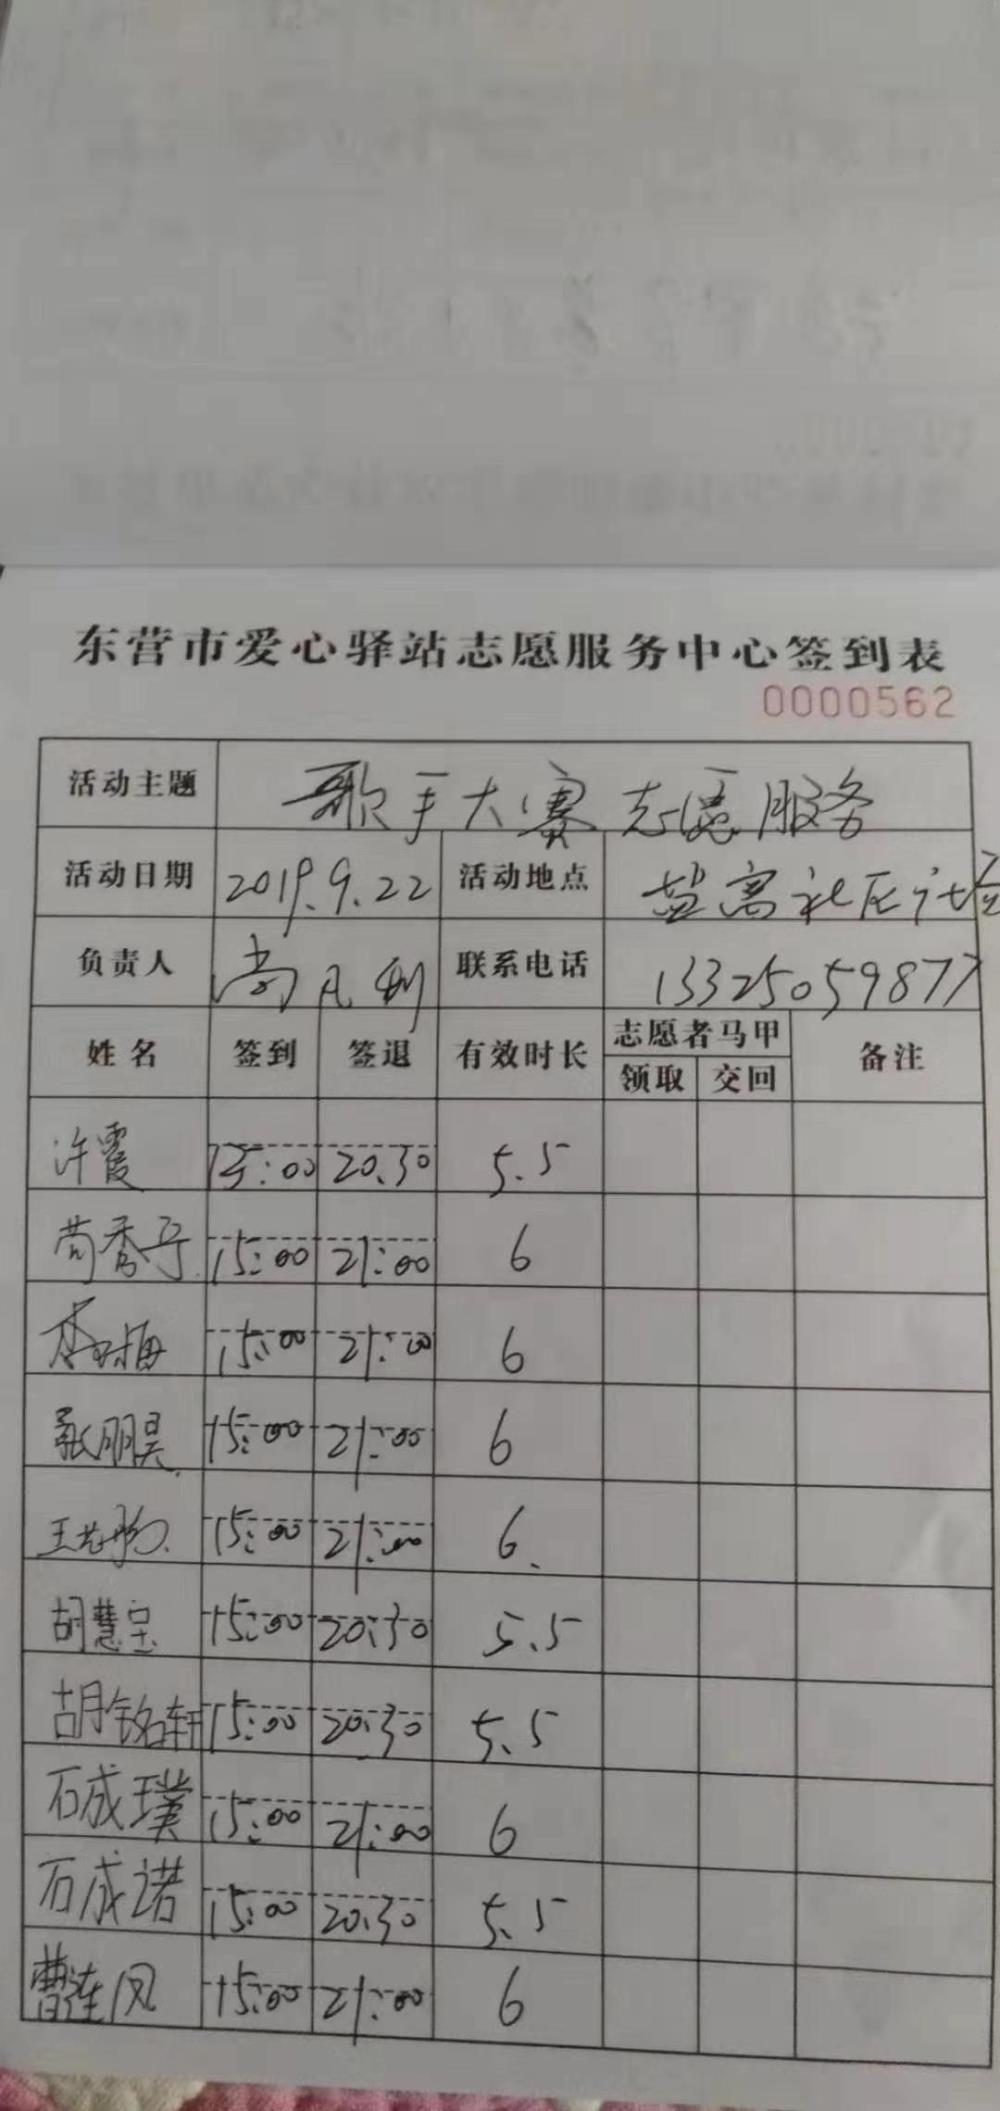 东营市爱心驿站志愿服务中心签到表
0000562
活动主题 歌手大赛志愿服务
活动日期 2019.9.22 活动地点 盐窝社区
负责人 尚凡利 联系电话 13325059877
姓名 签到 签退 有效时长 志愿者马甲 备注
领取 交回
许霞 15:00 20.30 5.5
苟秀 15:00 21:00 6
15:00 21:00 6
张朋昊 15:00 21:00 6
王艺彤 15:00 21:00 6.
胡慧宝 15:00 20:30 5.5
胡铭轩 15:00 20:30 5.5
石成璞 15:00 21:00 6
石成诺 15:00 20:30 5.5
曹连凤 15:00 21:00 6